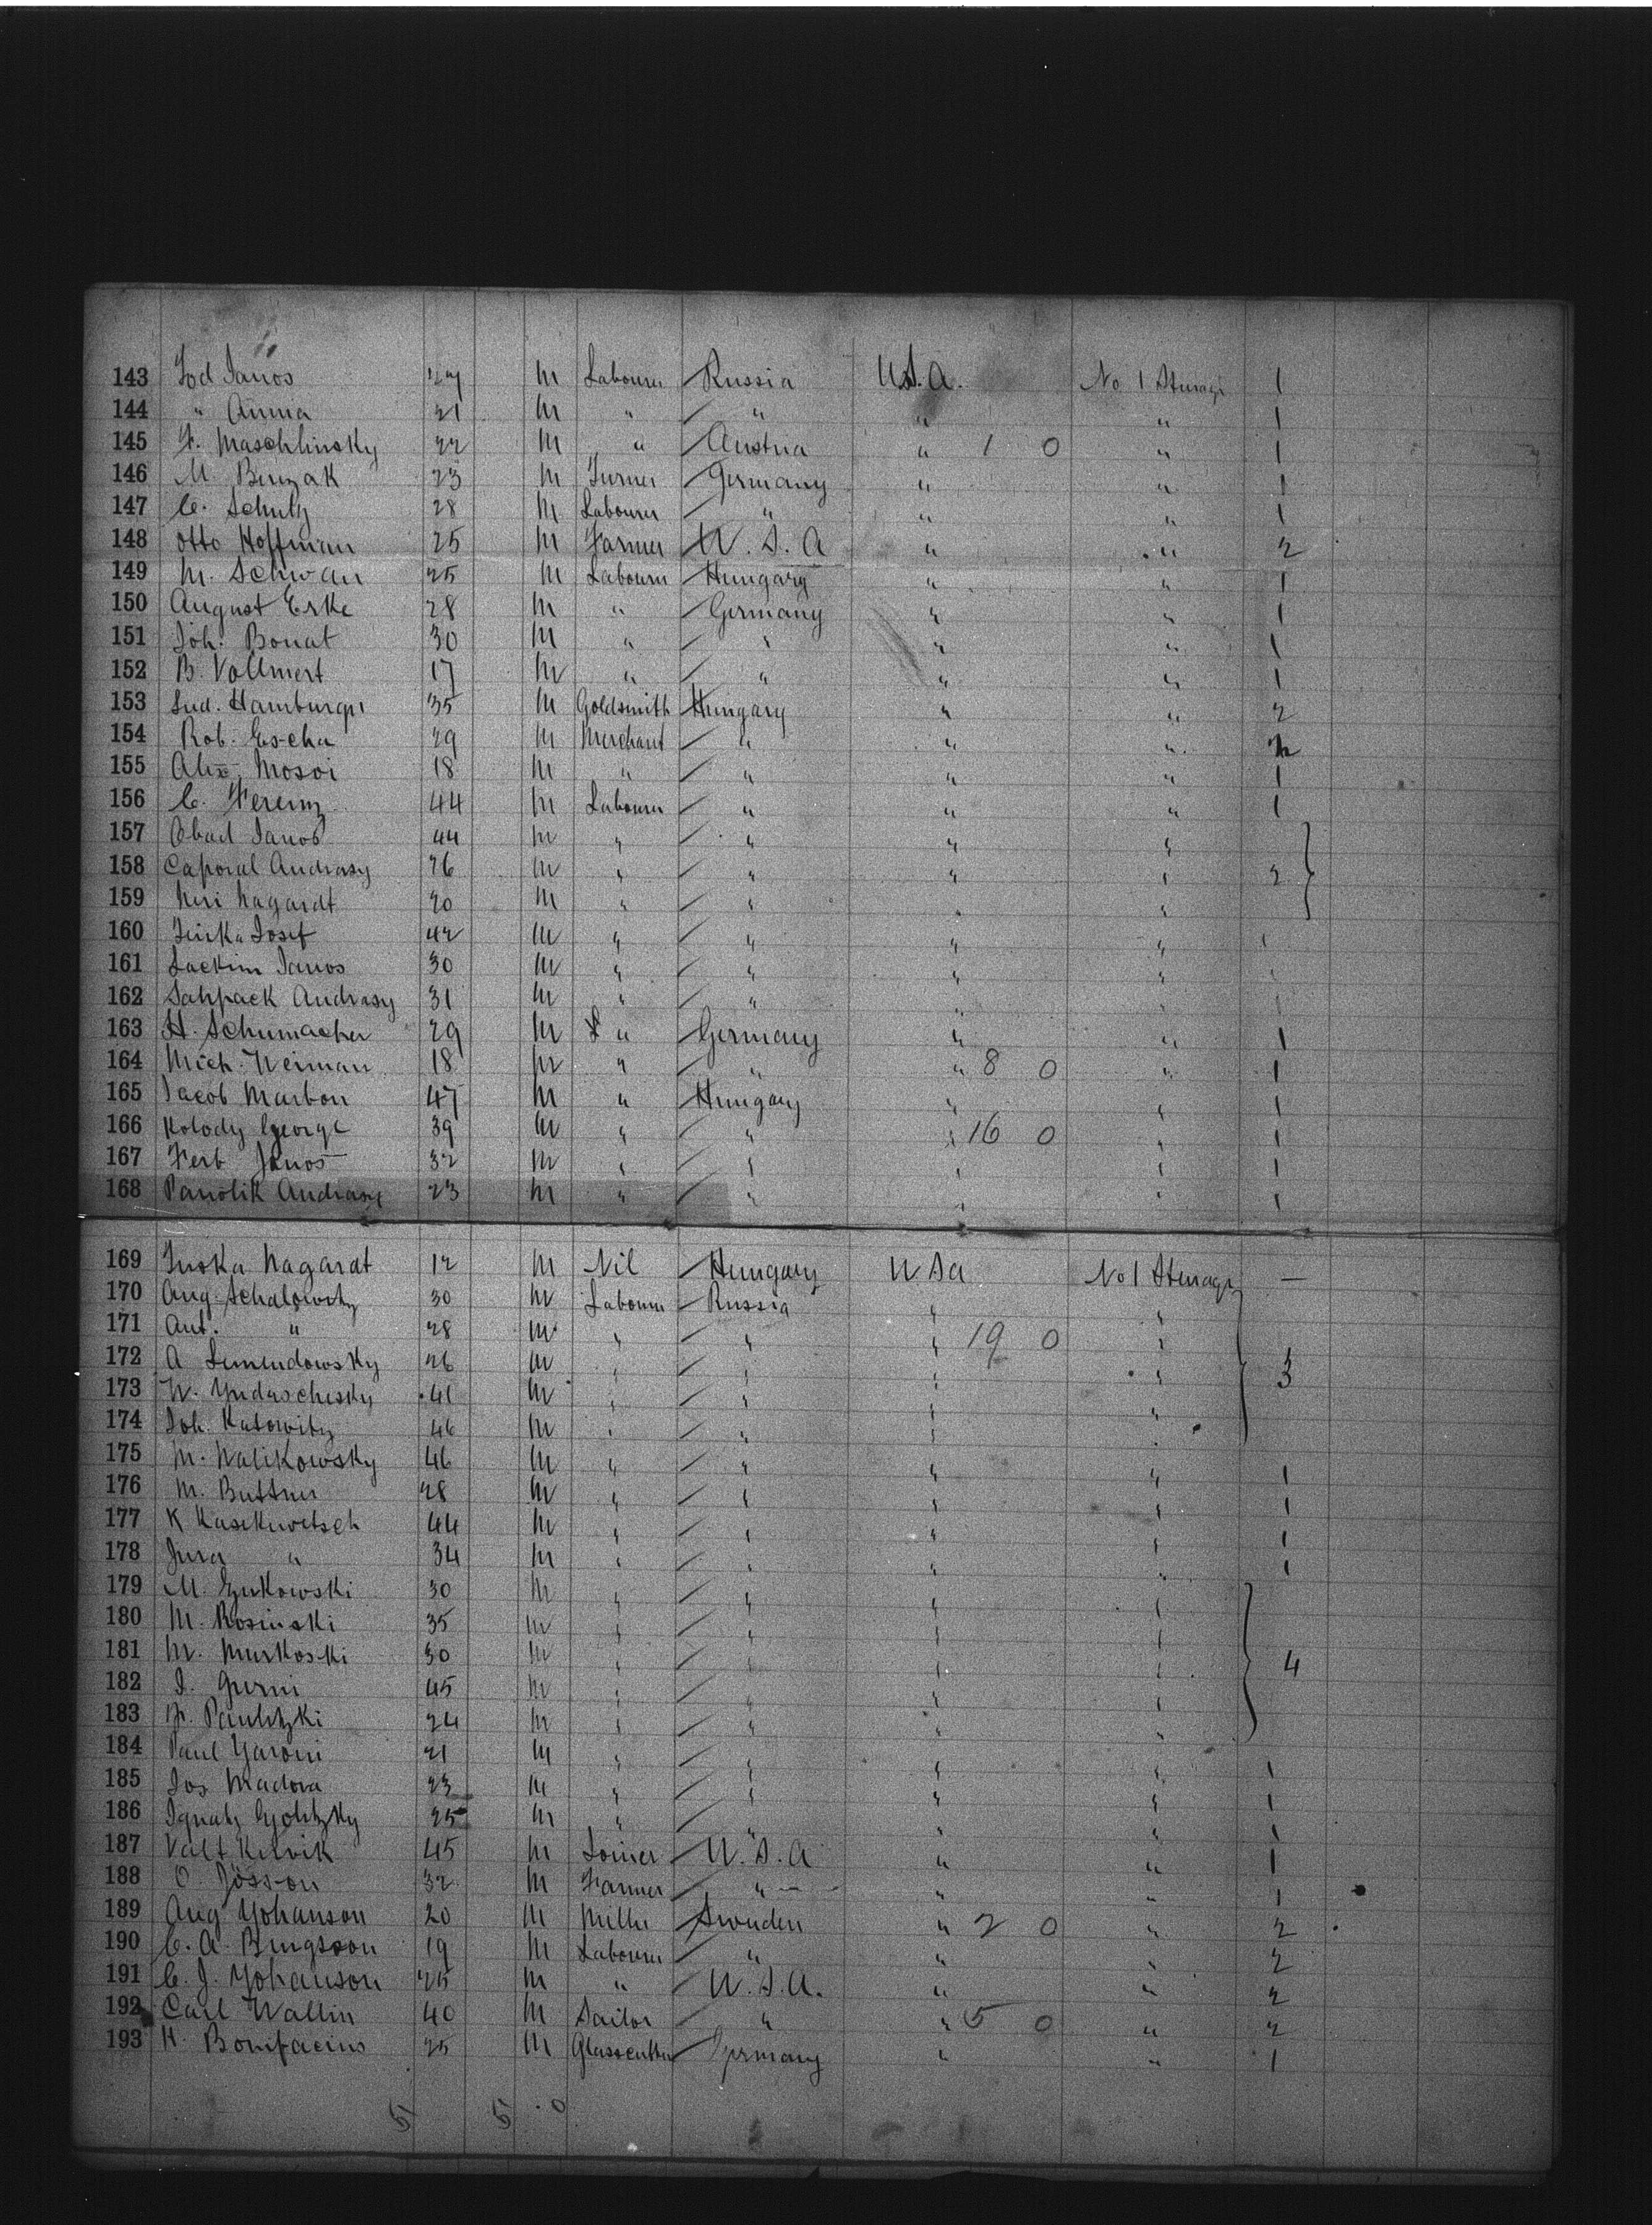 143 Tod Janos 27 M Labourer Russia U.S.A. No 1 Sterage 1
144 " Anna 21 M " " " " 1
145 F. Maschlinsky 22 M " Austria " 1 0 " 1
146 M. Binzak 23 M Turner Germany " " 1
147 C. Schulz 28 M Labourer " " " 1
148 Otto Hoffman 25 M Farmer U.S.A " " 2
149 M. Schwan 25 M Labourer Hungary " " 1
150 August Erke 28 M " Germany " " 1
151 Joh. Bonat 30 M " " " " 1
152 B. Vollmert 17 M " " " " 1
153 Lud. Hamburger 35 M Goldsmith Hungary " " 2
154 Rob. Escha 29 M Merchant " " " 2
155 Alex. Mosoi 18 M " " " " 1
156 C. Ferenz 44 M Labourer " " " 1
157 Obad Janos 44 M " " " "
158 Caporal Andrasy 26 M " " " " 2
159 Neri Nagardt 20 M " " " "
160 Jurka Josef 42 M " " " " "
161 Lackim Janos 30 M " " " " "
162 Sahpack Andrasy 31 M " " " "
163 H. Schumacher 29 M " Germany " " 1
164 Mich. Neiman 18 M " " " 8 0 " 1
165 Jacob Marbon 47 M " Hungary " " 1
166 Kolody George 39 M " " " 16 0 " 1
167 Ferb Janos 32 M " " " " 1
168 Panolik Andrasy 23 M " " " " 1
169 Juska Nagardt 12 M Nil Hungary U S a No 1 Sterage —
170 Aug. Schalowitz 30 M Labourer Russia " "
171 Ant. " 28 M " " " 19 0 "
172 A Simendowsky 26 M " " " " 3
173 W. Yudaschesky 41 M " " " "
174 Joh. Katowitz 46 M " " " "
175 M. Walikowsky 46 M " " " " 1
176 M. Buttner 28 M " " " " 1
177 K Kasekuvetsch 44 M " " " " 1
178 Jura " 34 M " " " " 1
179 M. Zukowski 30 M " " " "
180 M. Rosinski 35 M " " " "
181 M. Murkoski 30 M " " " " 4
182 J. Gurni 45 M " " " "
183 F. Paulitzki 24 M " " " "
184 Paul Yaroni 21 M " " " " 1
185 Jos Madora 23 M " " " " 1
186 Ignatz Golitzky 25 M " " " " 1
187 Valt Kilvik 45 M Joiner U.S.A " " 1
188 O. Jösson 32 M Farmer " " " 1
189 Aug Yohanson 20 M Miller Sweden " 2 0 " 2
190 C. A. Bengsson 19 M Labourer " " " 2
191 C. J. Yohanson 25 M " U.S.A. " " 2
192 Carl Wallin 40 M Sailor " " 5 0 " 2
193 H. Bonifacius 25 M Glasscutter Germany " " 1